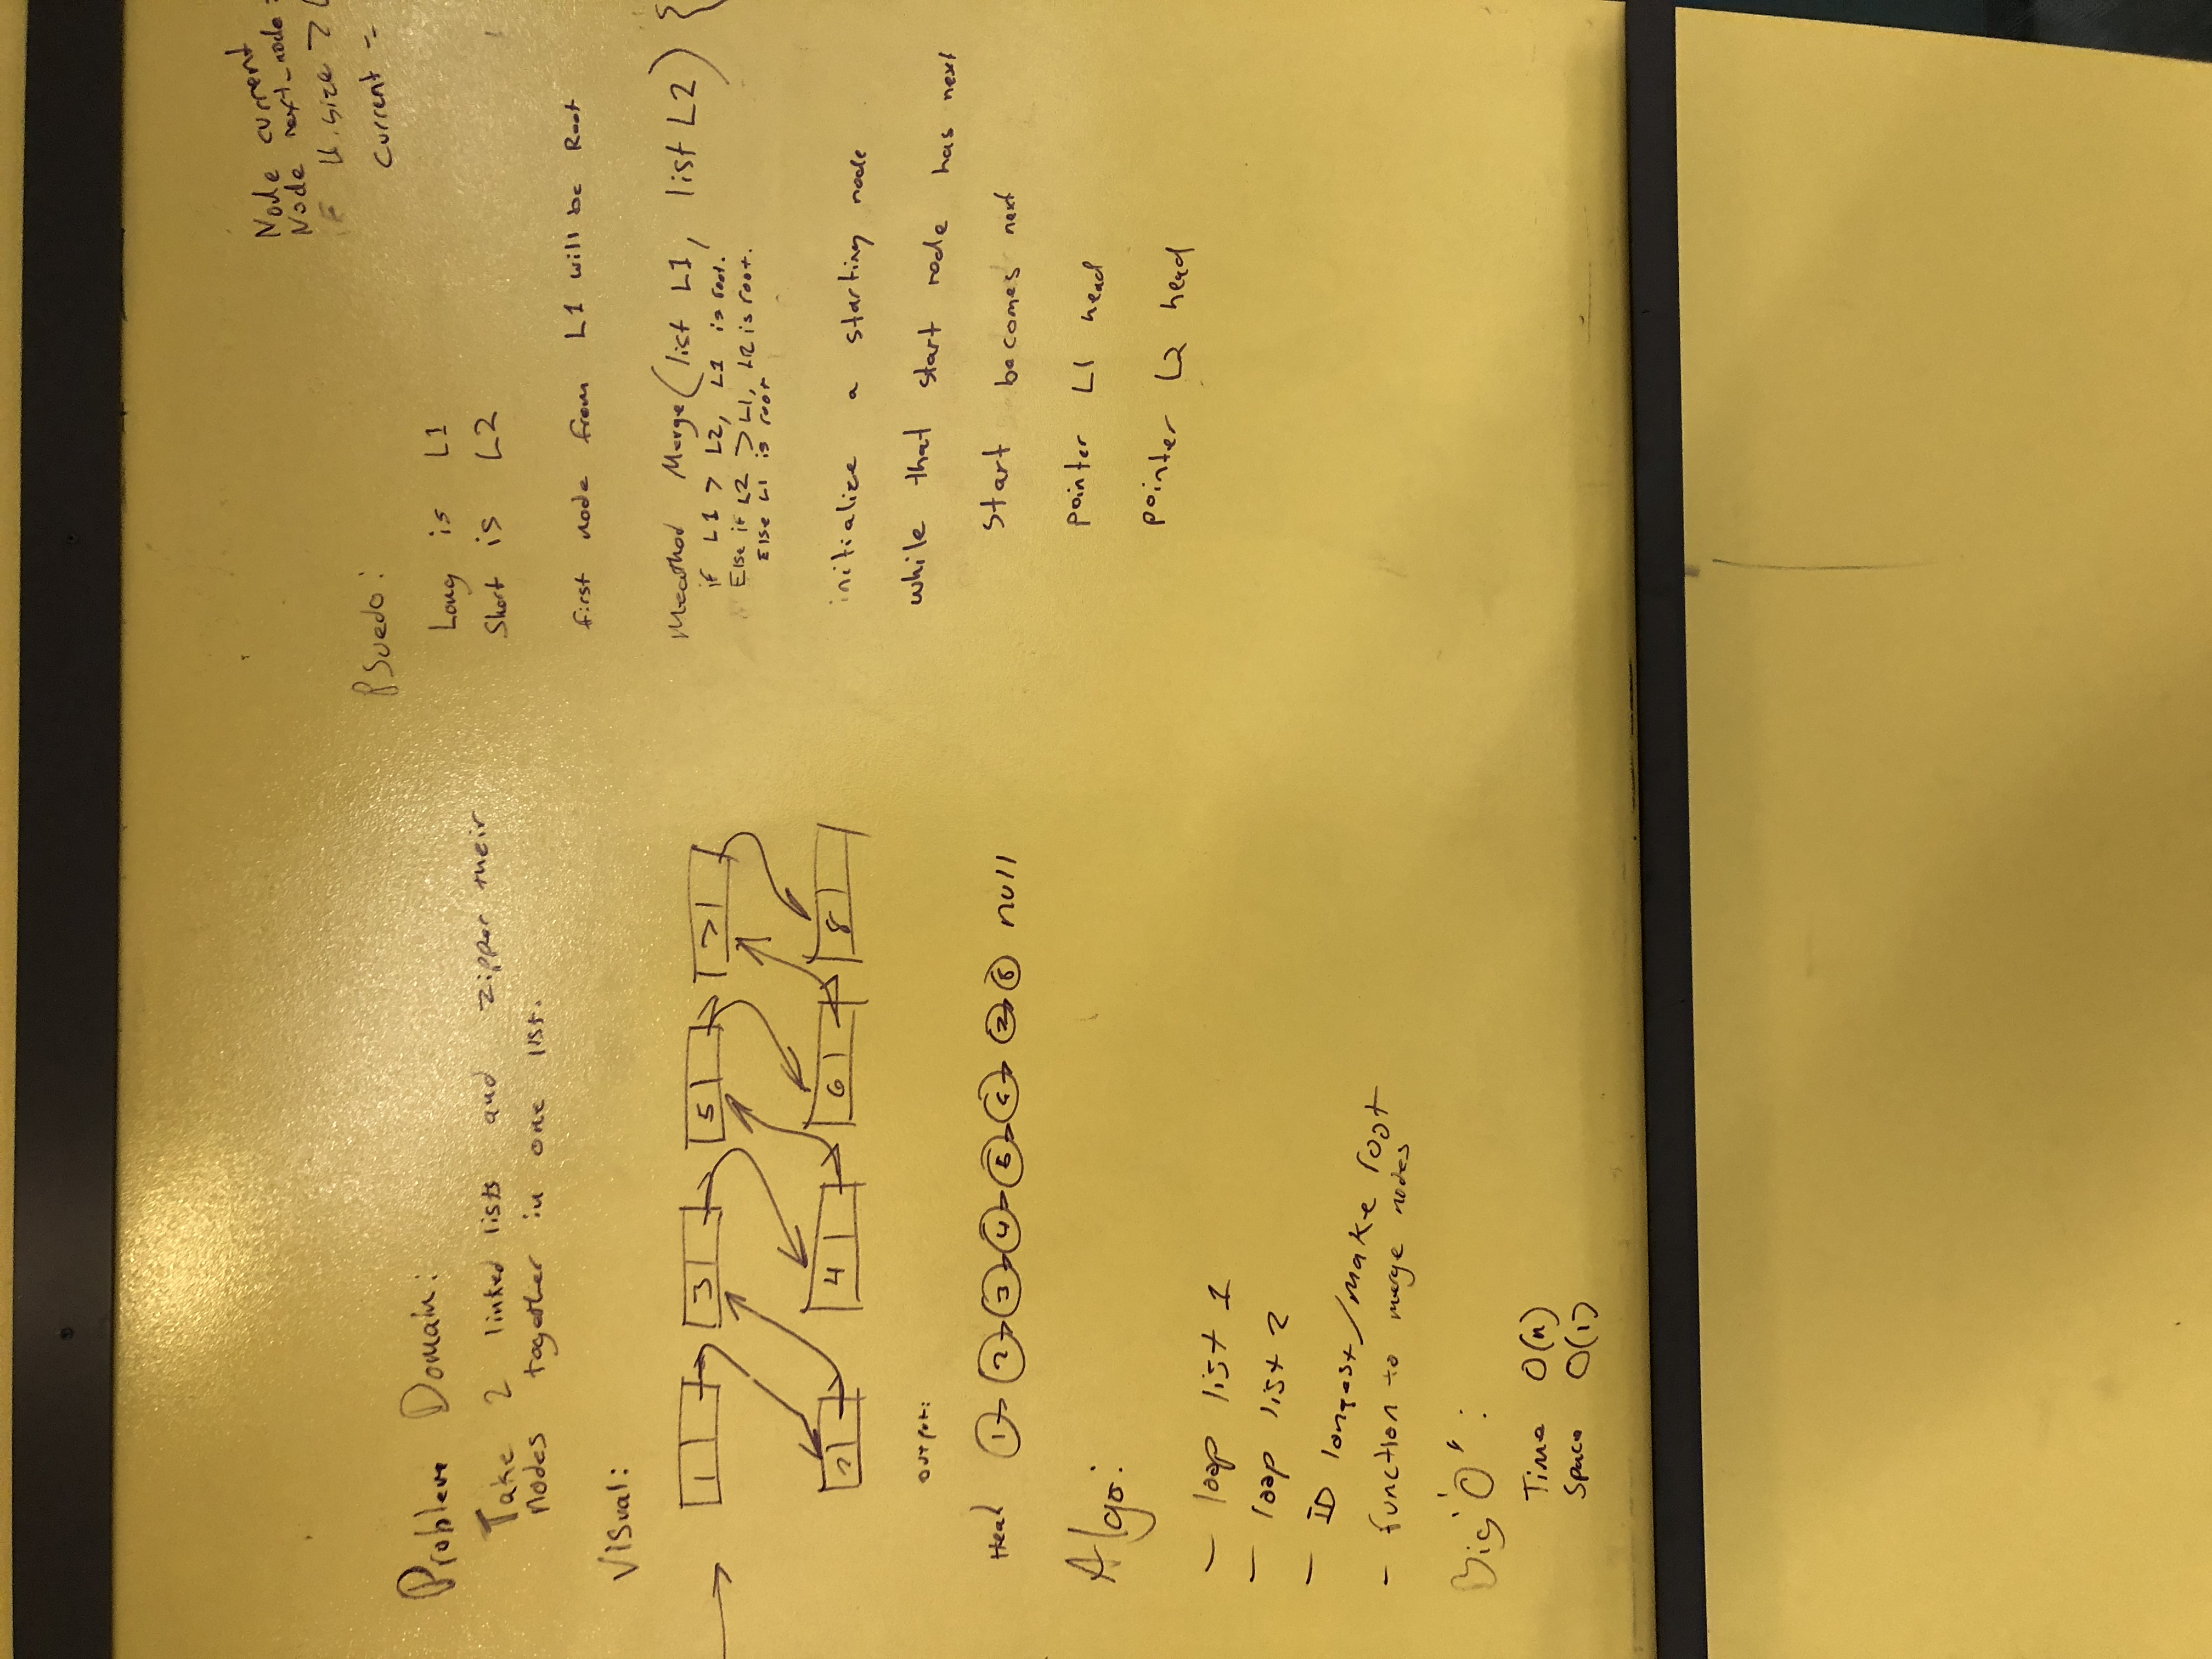 Problem Domain:
Take 2 linked lists and zipper their
nodes together in one list.
Visual:
1 3 5 7
2 4 6 8
output:
Head 1 2 3 4 5 6 7 8 null
Algo:
- loop list 1
- loop list 2
- ID longest/make root
- function to merge nodes
Big "O":
Time O(n)
Space O(1)
Psuedo:
Long is L1
Short is L2
first node from L1 will be Root
Meathod Merge(list L1, list L2) {
if L1 > L2, L1 is root.
Else if L2 > L1, L2 is root.
Else L1 is root
initialize a starting node
while that start node has next
start becomes next
pointer L1 head
pointer L2 head
Node current
Node next_node =
ll.size > (
current =